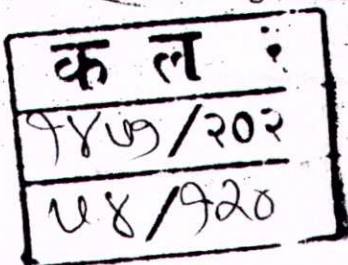 क ल :
१४७/२०२
५४/१२०